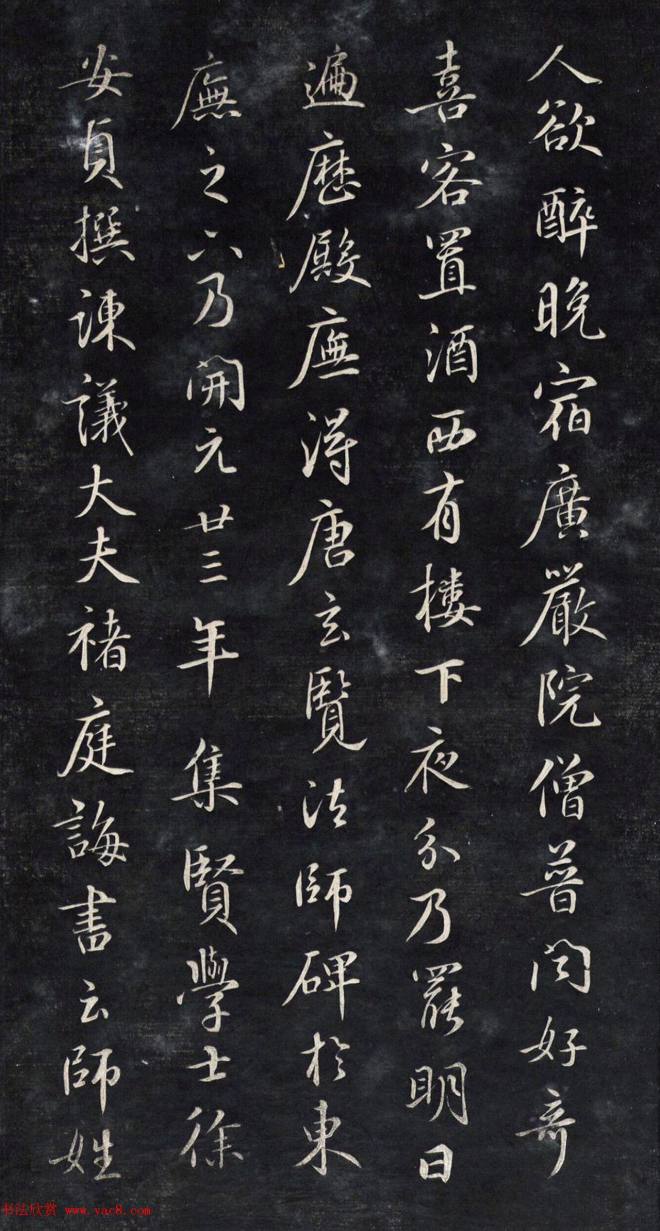 人欲醉晚宿廣嚴院僧普閏好奇
喜客置酒西有樓下夜分乃罷明日
遍歷殿廡得唐玄覽法師碑於東
廡之下乃開元廿三年集賢學士徐
安貞撰諫議大夫褚庭誨書云師姓
书法欣赏 www.yac8.com